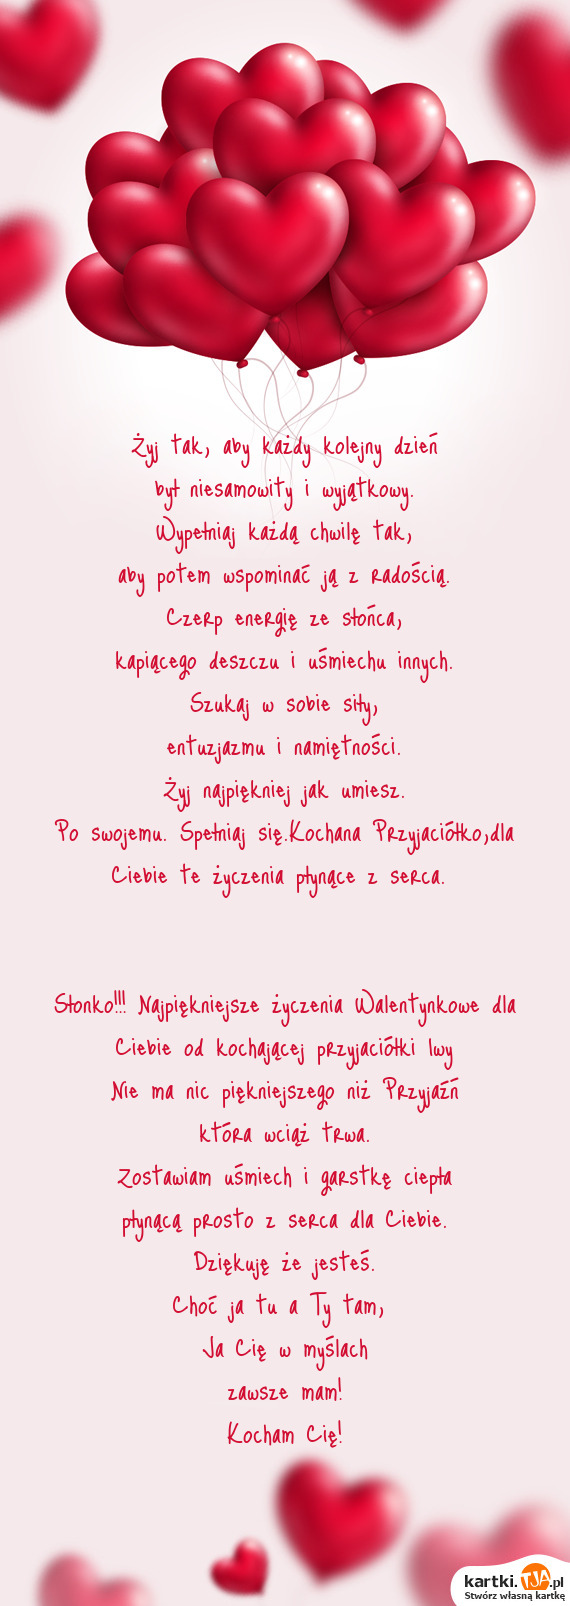 Żyj tak, aby każdy kolejny dzień
był niesamowity i wyjątkowy.
Wypełniaj każdą chwilę tak,
aby potem wspominać ją z radością.
Czerp energię ze słońca,
kapiącego deszczu i uśmiechu innych.
Szukaj w sobie siły,
entuzjazmu i namiętności.
Żyj najpiękniej jak umiesz.
Po swojemu. Spełniaj się.Kochana Przyjaciółko,dla
Ciebie te życzenia płynące z serca.
Słonko!!! Najpiękniejsze życzenia Walentynkowe dla
Ciebie od kochającej przyjaciółki Iwy
Nie ma nic piękniejszego niż Przyjaźń
która wciąż trwa.
Zostawiam uśmiech i garstkę ciepła
płynącą prosto z serca dla Ciebie.
Dziękuję że jesteś.
Choć ja tu a Ty tam,
Ja Cię w myślach
zawsze mam!
Kocham Cię!
kartki.TJA.pl
Stwórz własną kartkę